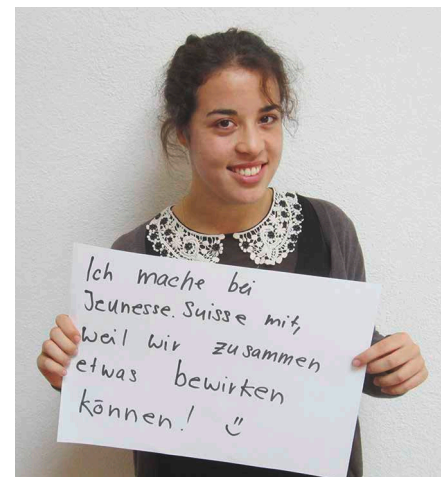 Ich mache bei
Jeunesse.Suisse mit,
weil wir zusammen
etwas bewirken
können! ü